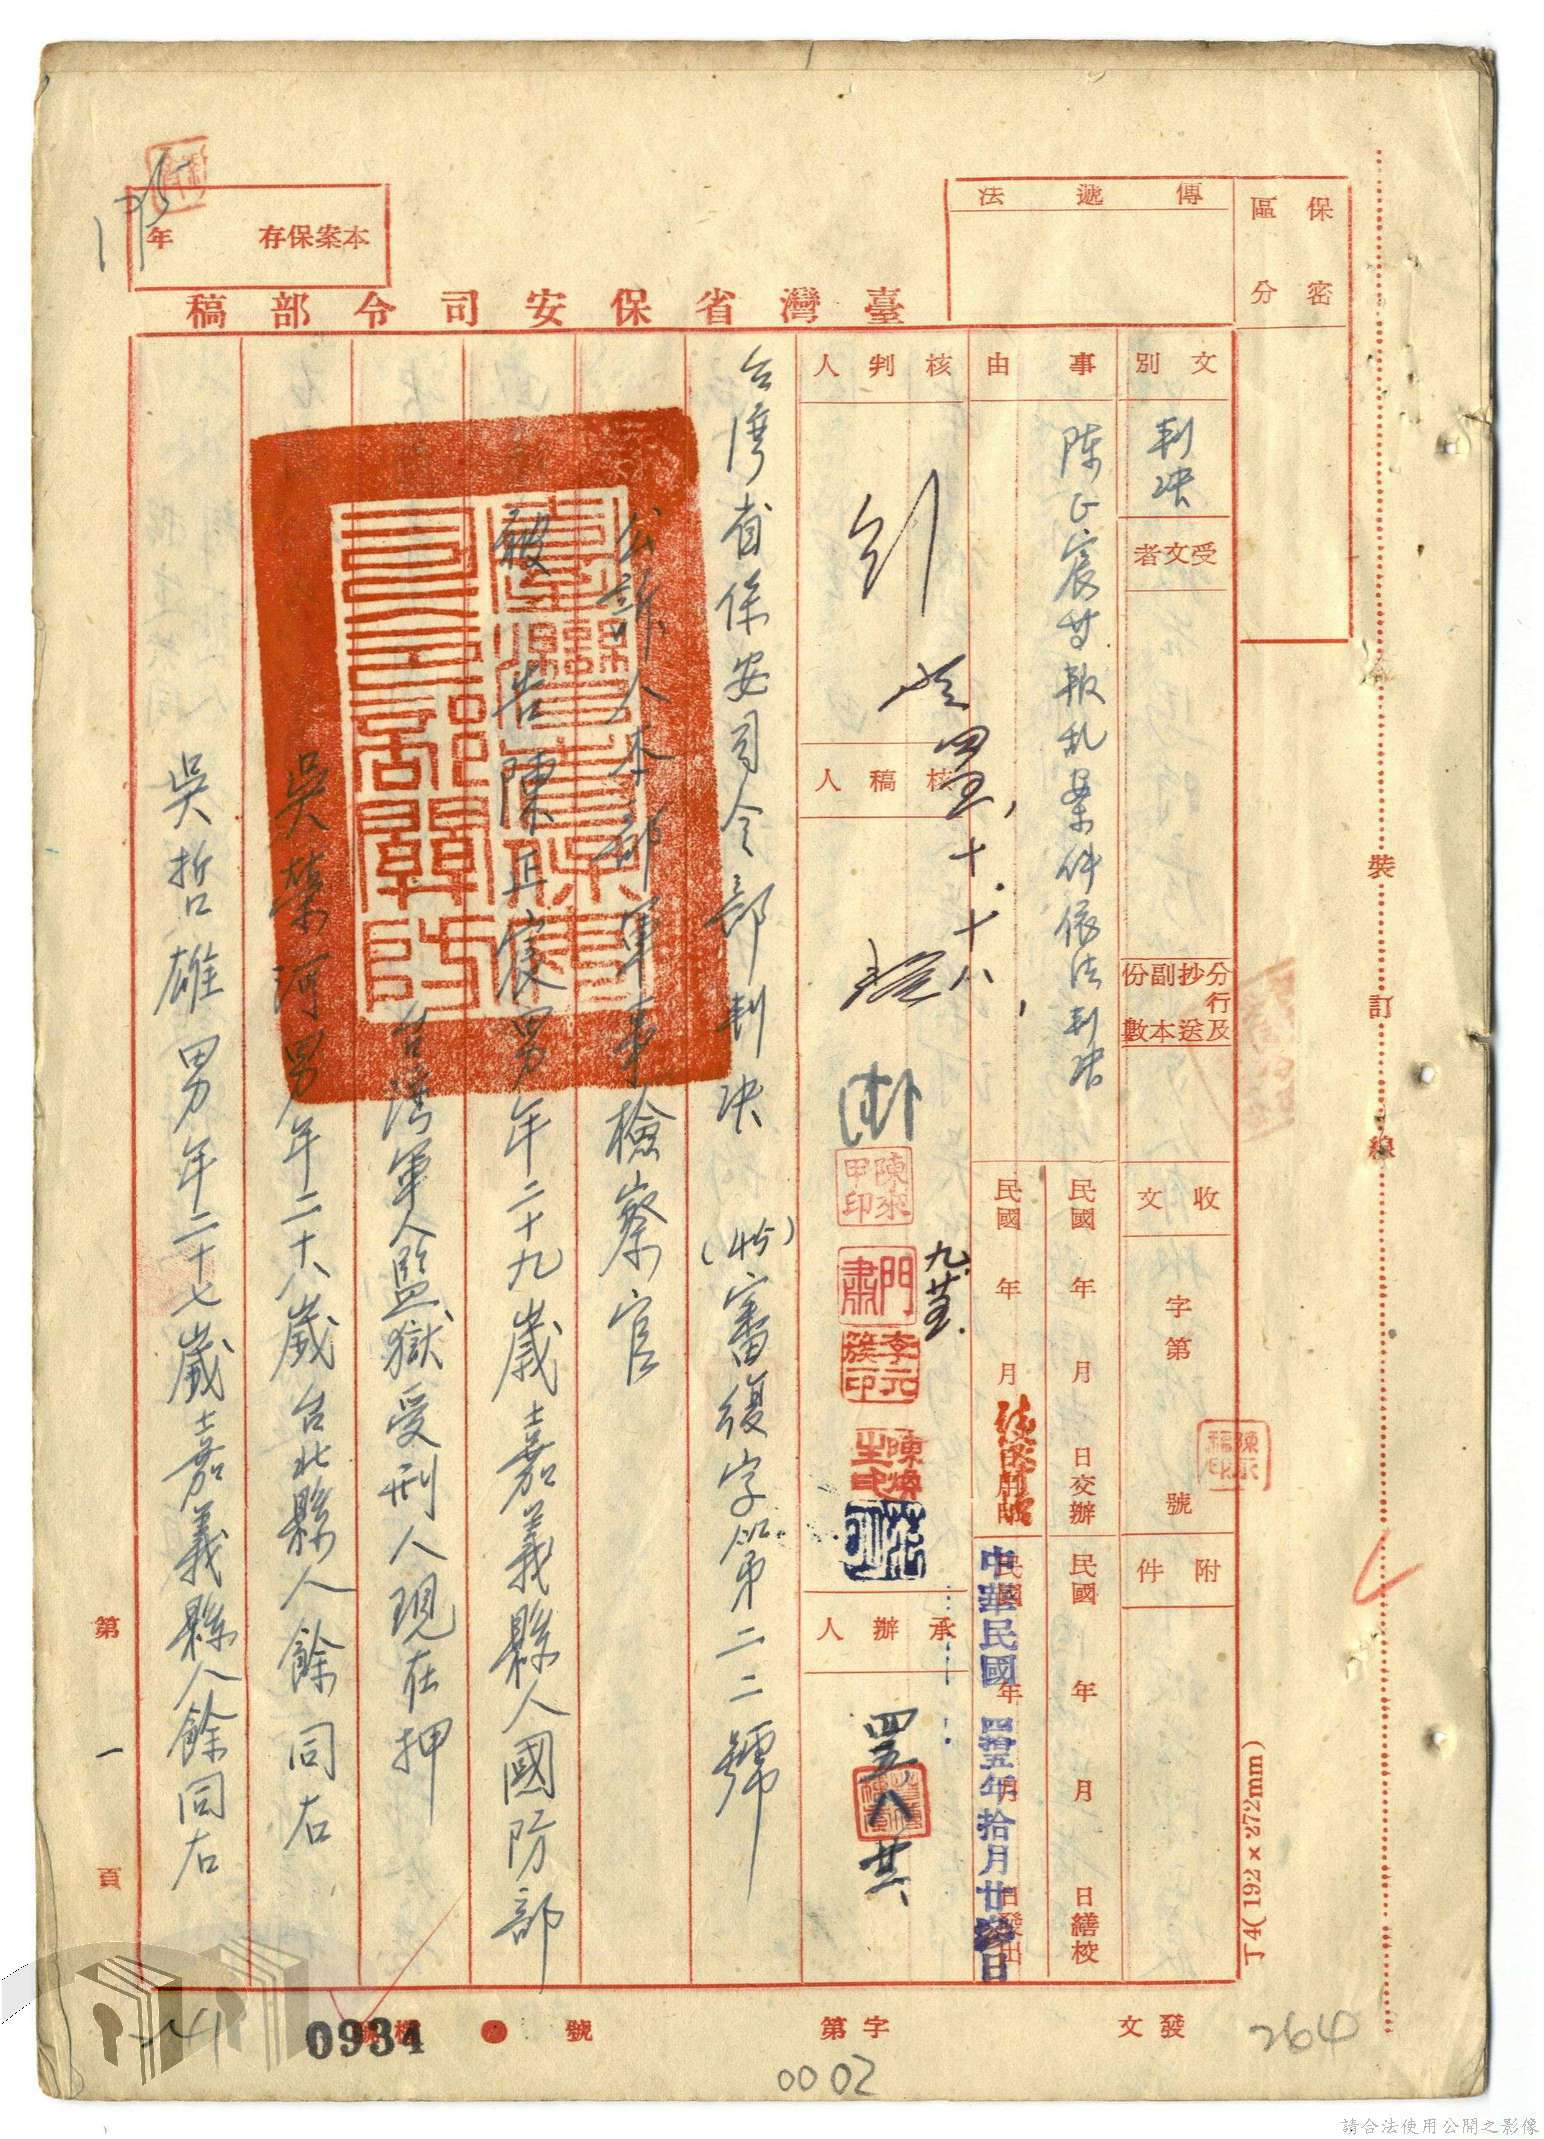 保密
區分
傳遞法
本案保存 年
臺灣省保安司令部稿
文別
判決
受文者
分行及抄送副本份數
收文
字第 號
附件
事由
陳正宸等叛乱案件依法判决
民國 年 月 日交辦
民國 年 月 日繕校
民國 年 月
民國 年 月 日發出
中華民國 肆拾五年拾月廿 日
核判人
核稿人
四五、十、十八、
陳來甲印
門肅
李元簇印
九、廿五、
承辦人
四五、八、廿、
台湾省保安司令部判决 (45)審復字第二二號
公訴人本部軍事檢察官
被告陳正宸男年二十九歲嘉義縣人國防部
台湾軍人監獄受刑人現在押
吳榮河男年二十八歲台北縣人餘同右
吳哲雄男年二十七歲嘉義縣人餘同右
第一頁
裝訂線
丁4(192×272mm)
發文
字第
號
檔號
0934
0002
264
請合法使用公開之影像